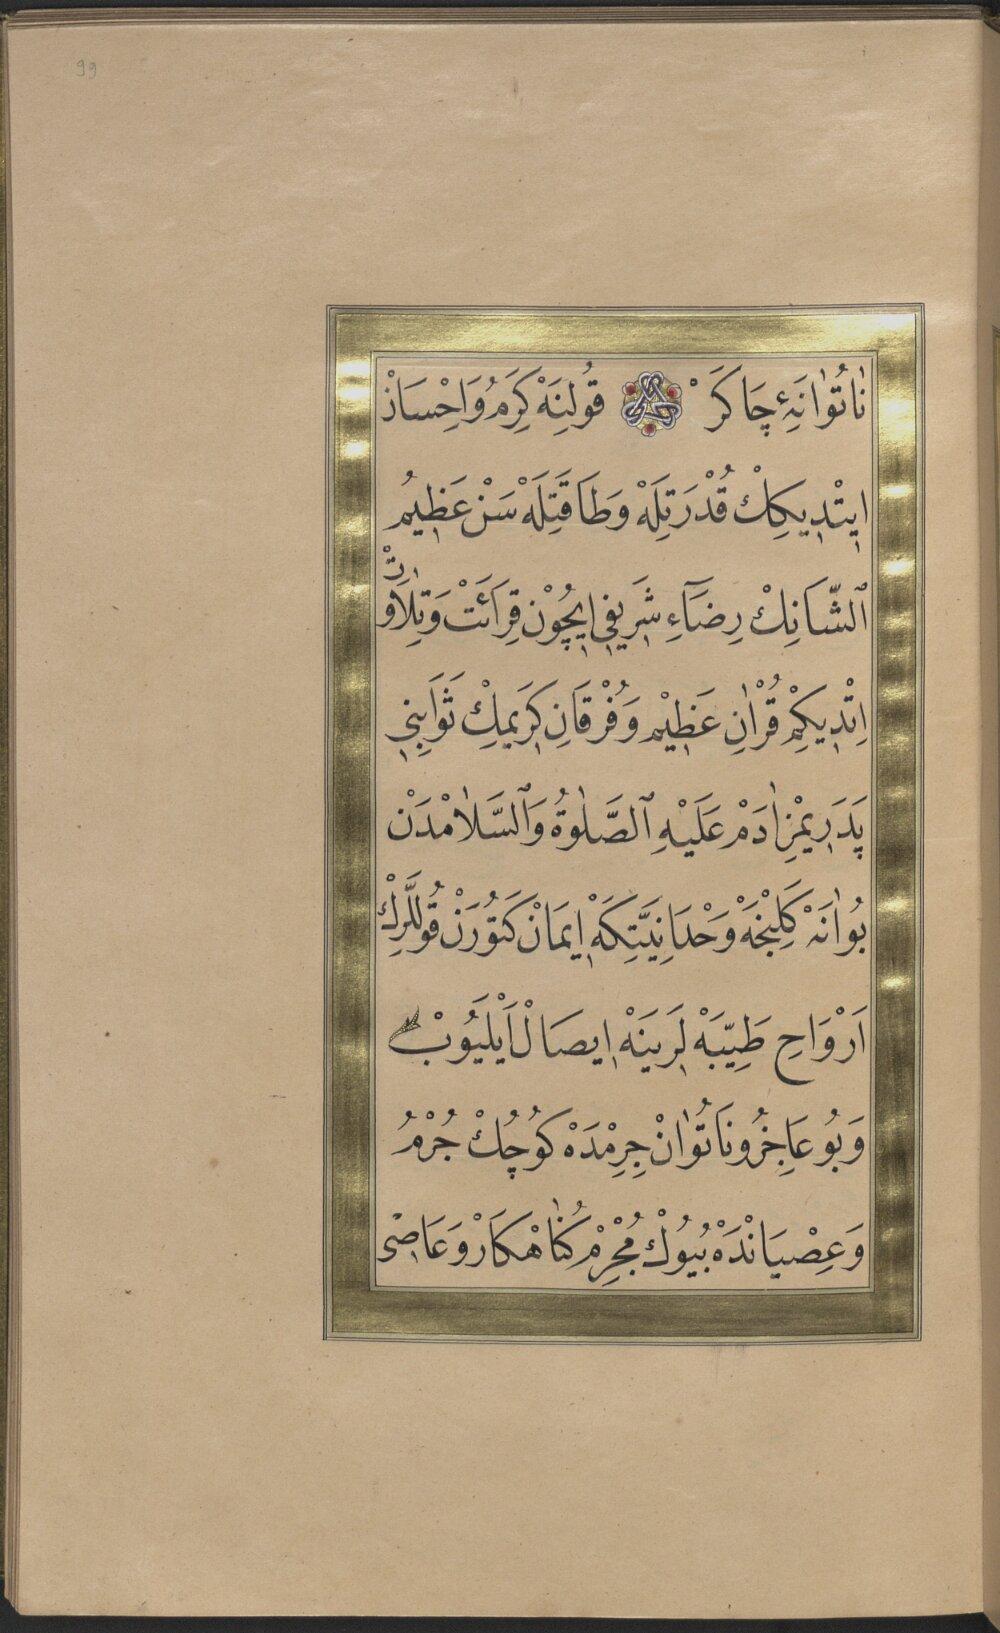 99
نَاتُوَانَۀِ چَاكَرْ قُولِنَهْ كَرَمُ وَاِحْسَانْ
اِيتْدِيكِكْ قُدْرَتِلَهْ وَطَاقَتِلَهْ سَنْ عَظِيمُ
ٱلشَّانِكْ رِضَاءِ شَرِيفِ اِيچُوْنْ قِرَائَتْ وَتِلَاوَتْ
اِتْدِيكِمْ قُرْاٰنِ عَظِيْم وَفُرْقَانِ كَرِيمِكْ ثَوَابِنِى
پَدَرِيمْزِ اٰدَمْ عَلَيْهِ ٱلصَّلٰوةُ وَٱلسَّلَامْدَنْ
بُوانَهْ كَلِنْجَهْ وَحْدَانِيَّتِكَهْ اِيمَانْ كَتُورَنْ قُوللَّرِكْ
اَرْوَاحِ طَيِّبَهْ لَرِينَهْ اِيصَالْ اَيْلَيُوبْ
وَبُو عَاجِزُ وَنَاتُوَانْ جِرِمْدَهْ كُوچُكْ جُرْمُ
وَعِصْيَانْدَهْ بُيُوكْ مُجْرِمْ كُنَاهْكَارْ وَعَاصِى